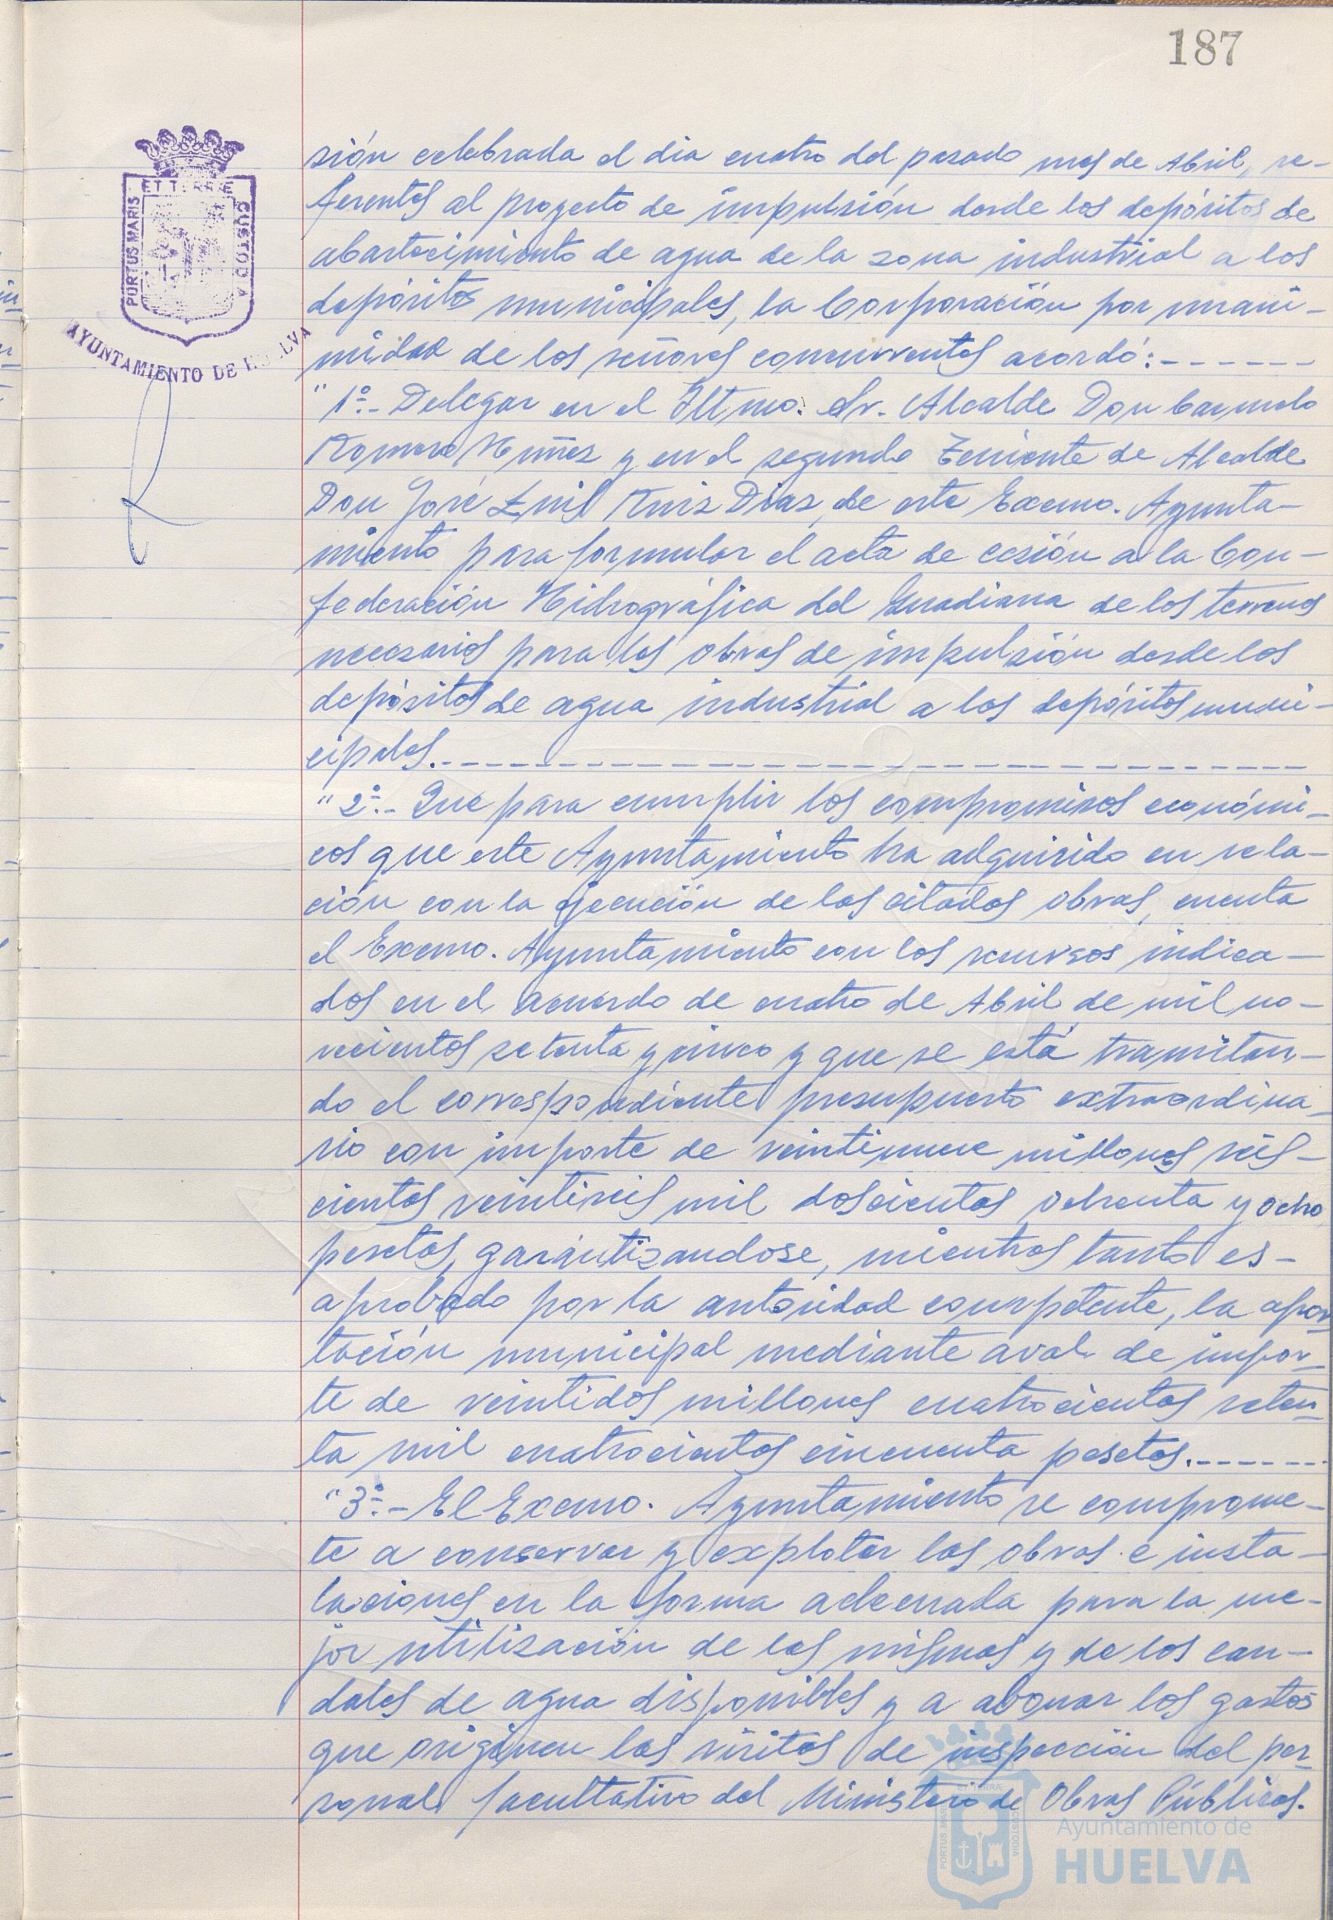 187
PORTUS MARIS ET TERRÆ CUSTODIA
AYUNTAMIENTO DE HUELVA
sión celebrada el dia cuatro del pasado mes de Abril, re-
ferentes al proyecto de impulsión desde los depósitos de
abastecimiento de agua de la zona industrial a los
depósitos municipales, la Corporación por unani-
midad de los señores concurrentes acordó:------
"1º.- Delegar en el Iltmo. Sr. Alcalde Don Carmelo
Romero Núñez y en el segundo Teniente de Alcalde
Don José Luis Ruiz Diaz, de este Excmo. Ayunta-
miento para formular el acta de cesión a la Con-
federación Hidrográfica del Guadiana de los terrenos
necesarios para las obras de impulsión desde los
depósitos de agua industrial a los depósitos muni-
cipales.--------------------
"2º.- Que para cumplir los compromisos económi-
cos que este Ayuntamiento ha adquirido en rela-
ción con la ejecución de las citadas obras, cuenta
el Excmo. Ayuntamiento con los recursos indica-
dos en el acuerdo de cuatro de Abril de mil no-
vecientos setenta y cinco y que se está tramitan-
do el correspondiente presupuesto extraordina-
rio con importe de veintinueve millones seis-
cientas veintiseis mil doscientas ochenta y ocho
pesetas, garantizandose, mientras tanto es-
aprobado por la autoridad competente, la apor-
tación municipal mediante aval de impor-
te de veintidos millones cuatrocientas seten-
ta mil cuatrocientas cincuenta pesetas.------
"3º.- El Excmo. Ayuntamiento se comprome-
te a conservar y explotar las obras e insta-
laciones en la forma adecuada para la me-
jor utilización de las mismas y de los cau-
dales de agua disponibles y a abonar los gastos
que originen las visitas de inspección del per-
sonal facultativo del Ministerio de Obras Públicas.
Ayuntamiento de
HUELVA